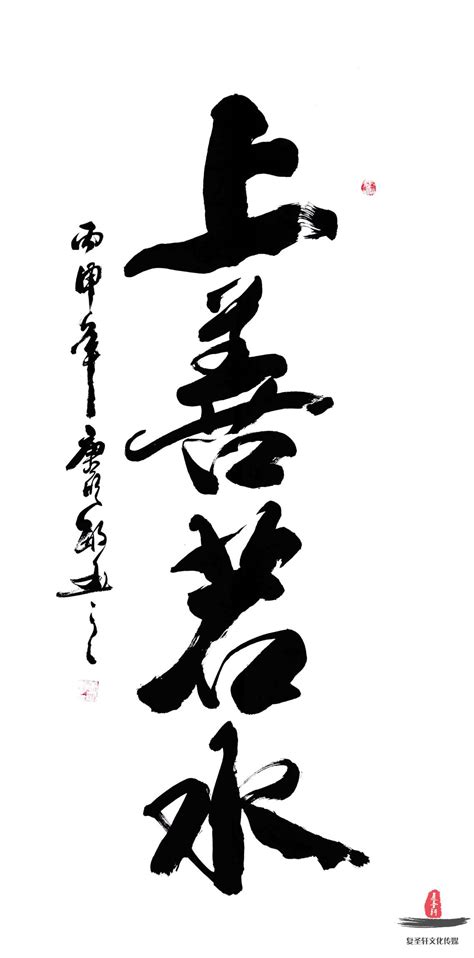 上善若水
丙申年康明敏书之
复圣轩文化传媒